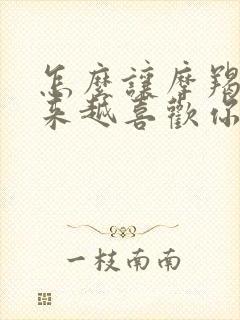 怎麼讓摩羯
來越喜歡你
一枝南南